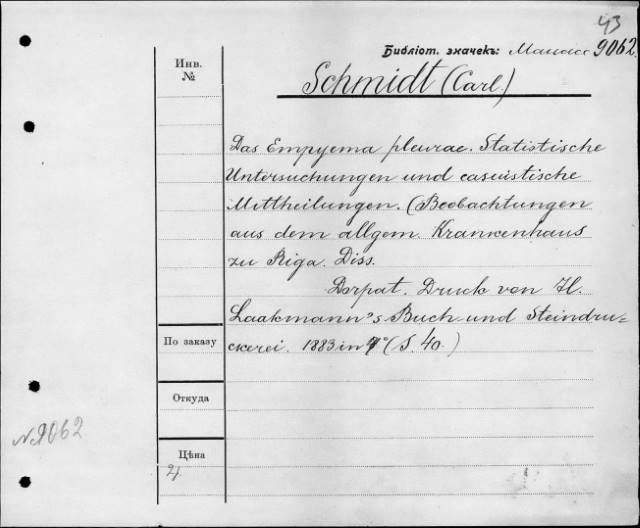 43
Библіот. значекъ: Манасс 9062.
Инв.
№
Schmidt (Carl.)
Das Empyema pleurae. Statistische
Untersuchungen und casuistische
Mittheilungen. (Beobachtungen
aus dem allgem. Krankenhaus
zu Riga. Diss.
Dorpat. Druck von H.
Laakmann's Buch und Steindru-
ckerei. 1883 in 4° (S. 40.)
По заказу
Откуда
N.9062
Цѣна